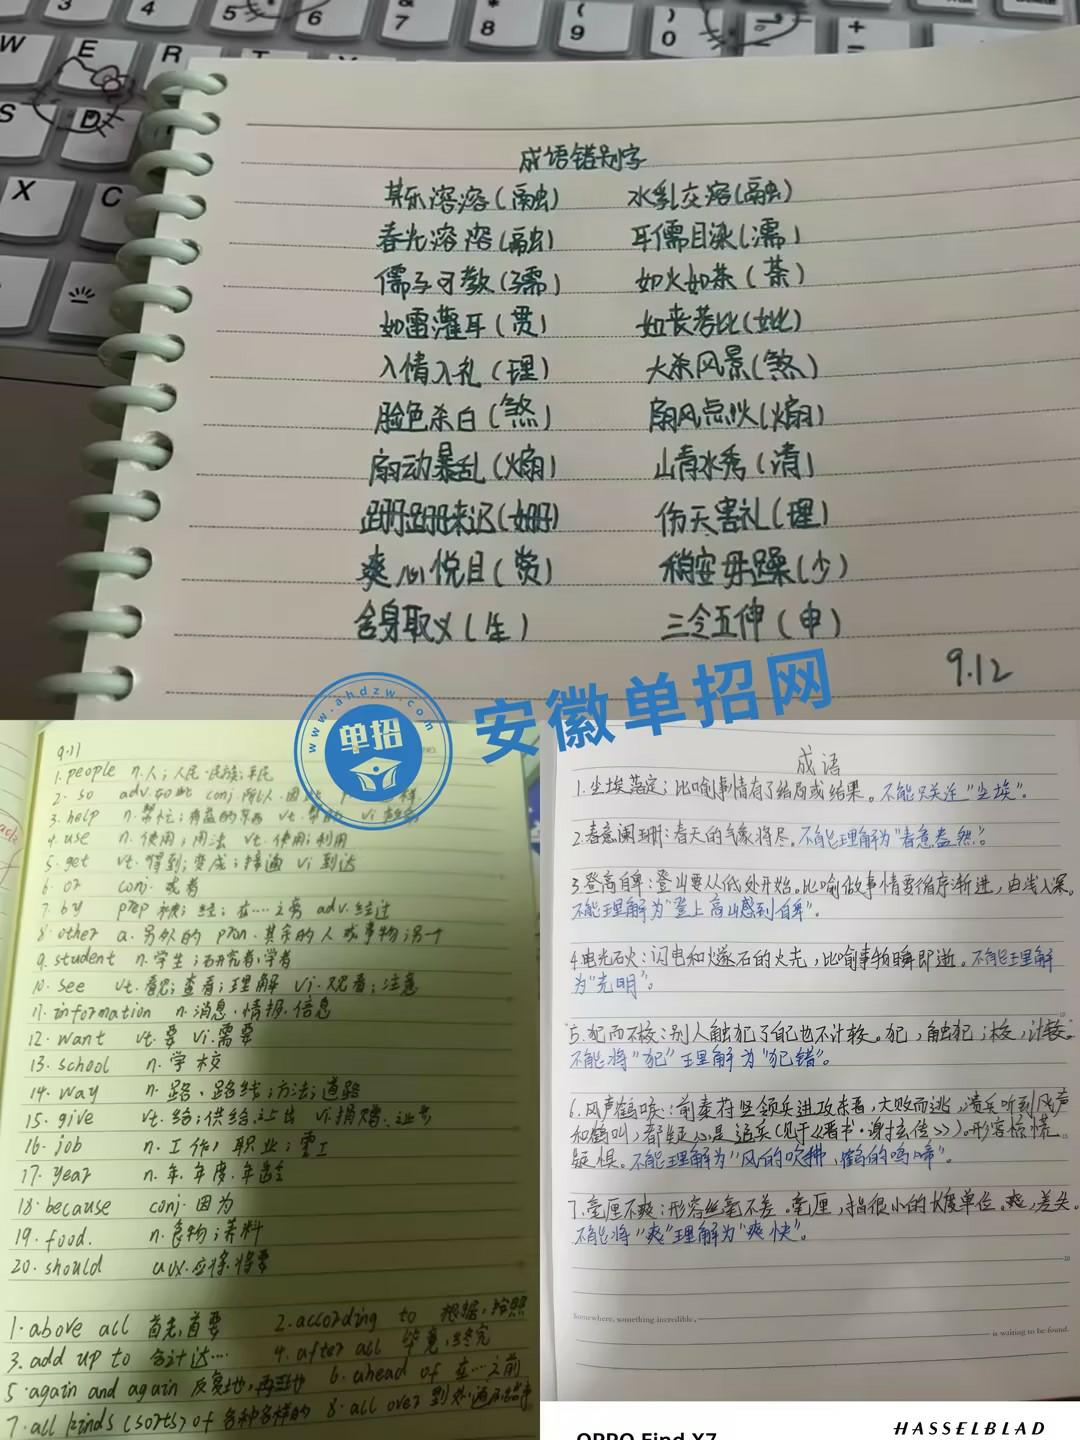 成语错别字
其乐溶溶(融) 水乳交溶(融)
春光溶溶(融) 耳儒目染(濡)
儒子可教(孺) 如火如茶(荼)
如雷灌耳(贯) 如丧考比(妣)
入情入礼(理) 大杀风景(煞)
脸色杀白(煞) 扇风点火(煽)
扇动暴乱(煽) 山青水秀(清)
跚跚来迟(姗) 伤天害礼(理)
爽心悦目(赏) 稍安毋躁(少)
舍身取义(生) 三令五伸(申)
9.12
www.ahdzw.com
单招
安徽单招网
9.11
1. people n.人;人民·民族;平民
2. so adv.如此 conj 所以·因此
3. help n.帮忙;有益的东西 vt.帮助
4. use n.使用;用法 vt.使用;利用
5. get vt.得到;变成;接通 vi到达
6. or conj. 或者
7. by prep 被;经;在····之旁 adv.经过
8. other a.另外的 pron.其余的人或事物;另一个
9. student n.学生;研究者,学者
10. see vt.看见;查看;理解 vi.观看;注意
11. information n.消息·情报.信息
12. want vt.要 vi.需要
13. school n.学校
14. way n.路、路线;方法;道路
15. give vt.给;供给;让出 vi捐赠.让步
16. job n.工作; 职业;零工
17. year n.年.年度.年龄
18. because conj.因为
19. food. n.食物;养料
20. should aux.应该.将要
1. above all 首先,首要 2. according to 根据,按照
3. add up to 合计达···· 4. after all 毕竟,终究
5. again and again 反复地,再三地 6. ahead of 在···之前
7. all kinds (sorts) of 各种各样的 8. all over 到处
成语
1.尘埃落定:比喻事情有了结局或结果。不能只关注"尘埃"。
2.春意阑珊:春天的气象将尽。不能理解为"春意盎然"。
3.登高自卑:登山要从低处开始。比喻做事情要循序渐进,由浅入深。
不能理解为"登上高山感到自卑"。
4.电光石火:闪电和燧石的火光,比喻事物瞬即逝。不能理解
为"光明"。
5.犯而不校:别人触犯了自己也不计较。犯,触犯;校,计较。
不能将"犯"理解为"犯错"。
6.风声鹤唳:前秦苻坚领兵进攻东晋,大败而逃,溃兵听到风声
和鹤叫,都疑心是追兵(见于《晋书·谢玄传》)。形容惊慌
疑惧。不能理解为"风的吹拂,鹤的鸣啼"。
7.毫厘不爽:形容丝毫不差。毫厘,指很小的长度单位。爽,差失。
不能将"爽"理解为"爽快"。
Somewhere, something incredible,
is waiting to be found.
OPPO Find X7
HASSELBLAD